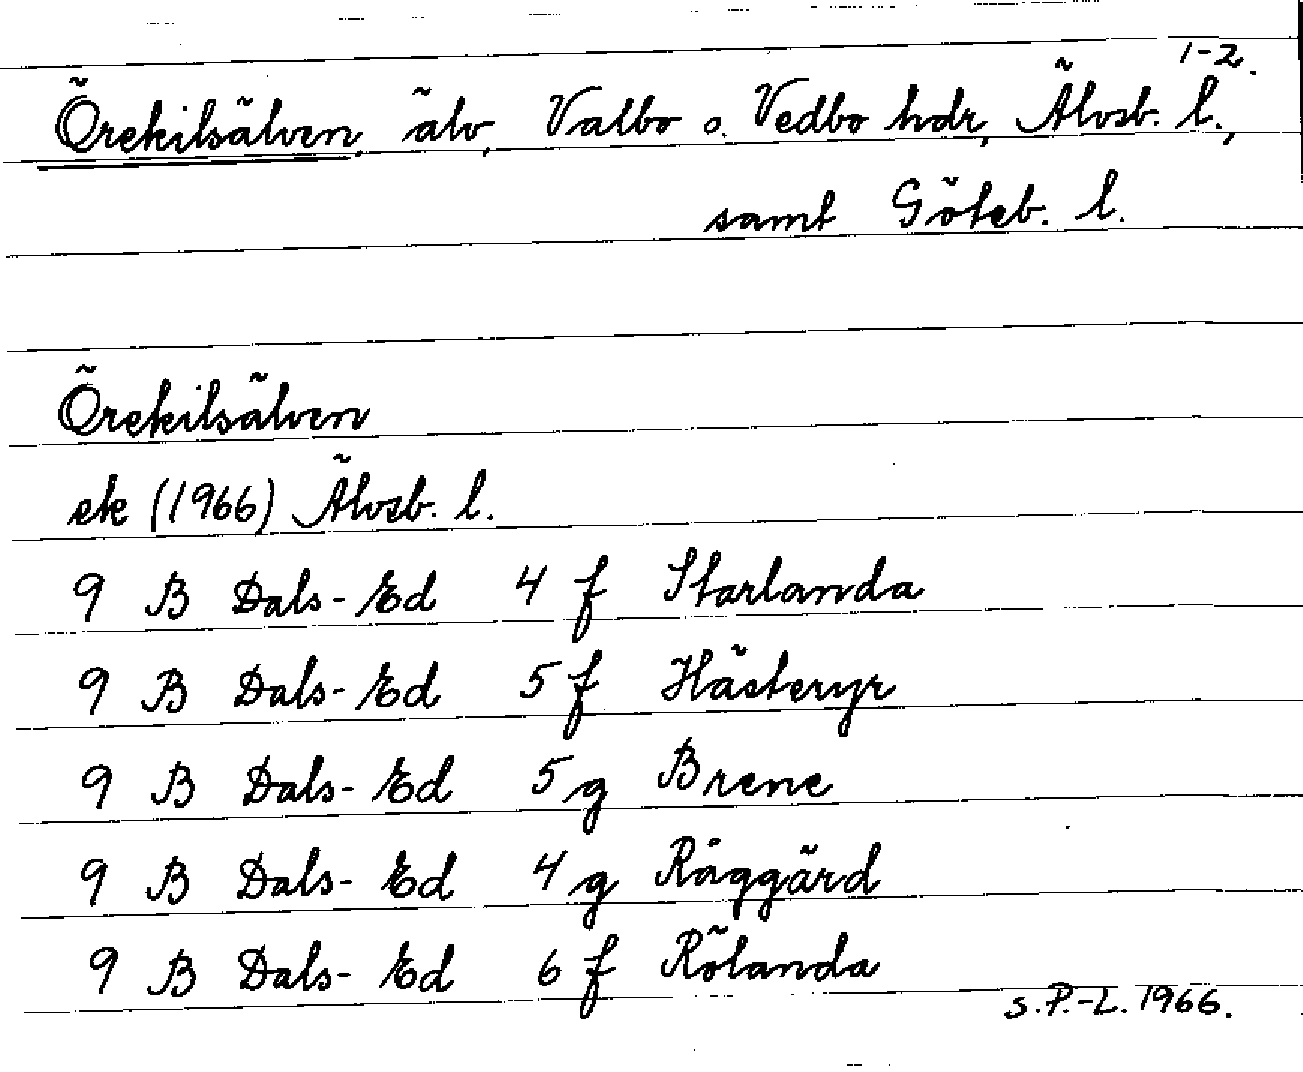 1-2.
Örekilsälven, älv, Valbo o. Vedbo hdr, Älvsb. l.,
samt Göteb. l.
Örekilsälven
ek (1966) Älvsb. l.
9 B Dals-Ed 4 f Starlanda
9 B Dals-Ed 5 f Hästeryr
9 B Dals-Ed 5 g Brene
9 B Dals-Ed 4 g Råggärd
9 B Dals-Ed 6 f Rölanda
S.P.-L. 1966.